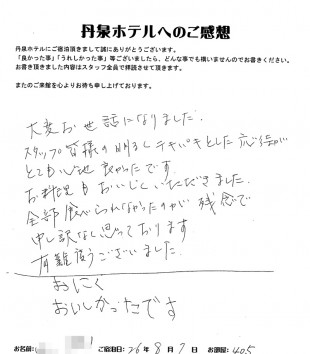 丹泉ホテルへのご感想
丹泉ホテルにご宿泊頂きまして誠にありがとうございます。
「良かった事」「うれしかった事」等ございましたら、どんな事でも構いませんのでお書きください。
お書き頂きました内容はスタッフ全員で拝読させて頂きます。
またのご来館を心よりお待ち申し上げております。
大変お世話になりました.
スタッフ皆様の明るくテキパキとした応待が
とても心地良かったです.
お料理もおいしくいただきました.
全部食べられなかったのが残念で
申し訳なく思っております
有難度うございました.
おにく
おいしかったです
お名前: ご宿泊日: 26年 8月 7日 お部屋: 405